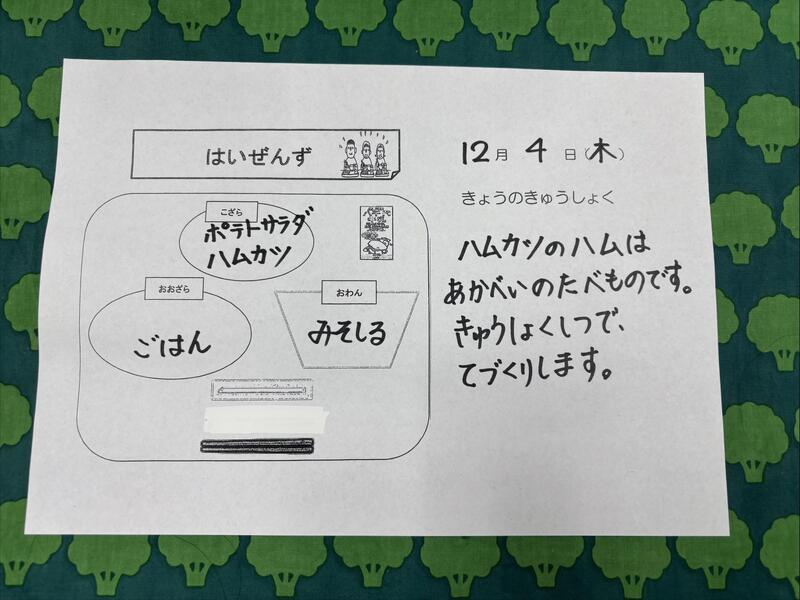 はいぜんず
こざら
ポテトサラダ
ハムカツ
おおざら
ごはん
おわん
みそしる
12月 4 日(木)
きょうのきゅうしょく
ハムカツのハムは
あかべいのたべものです。
きゅうしょくしつで、
てづくりします。